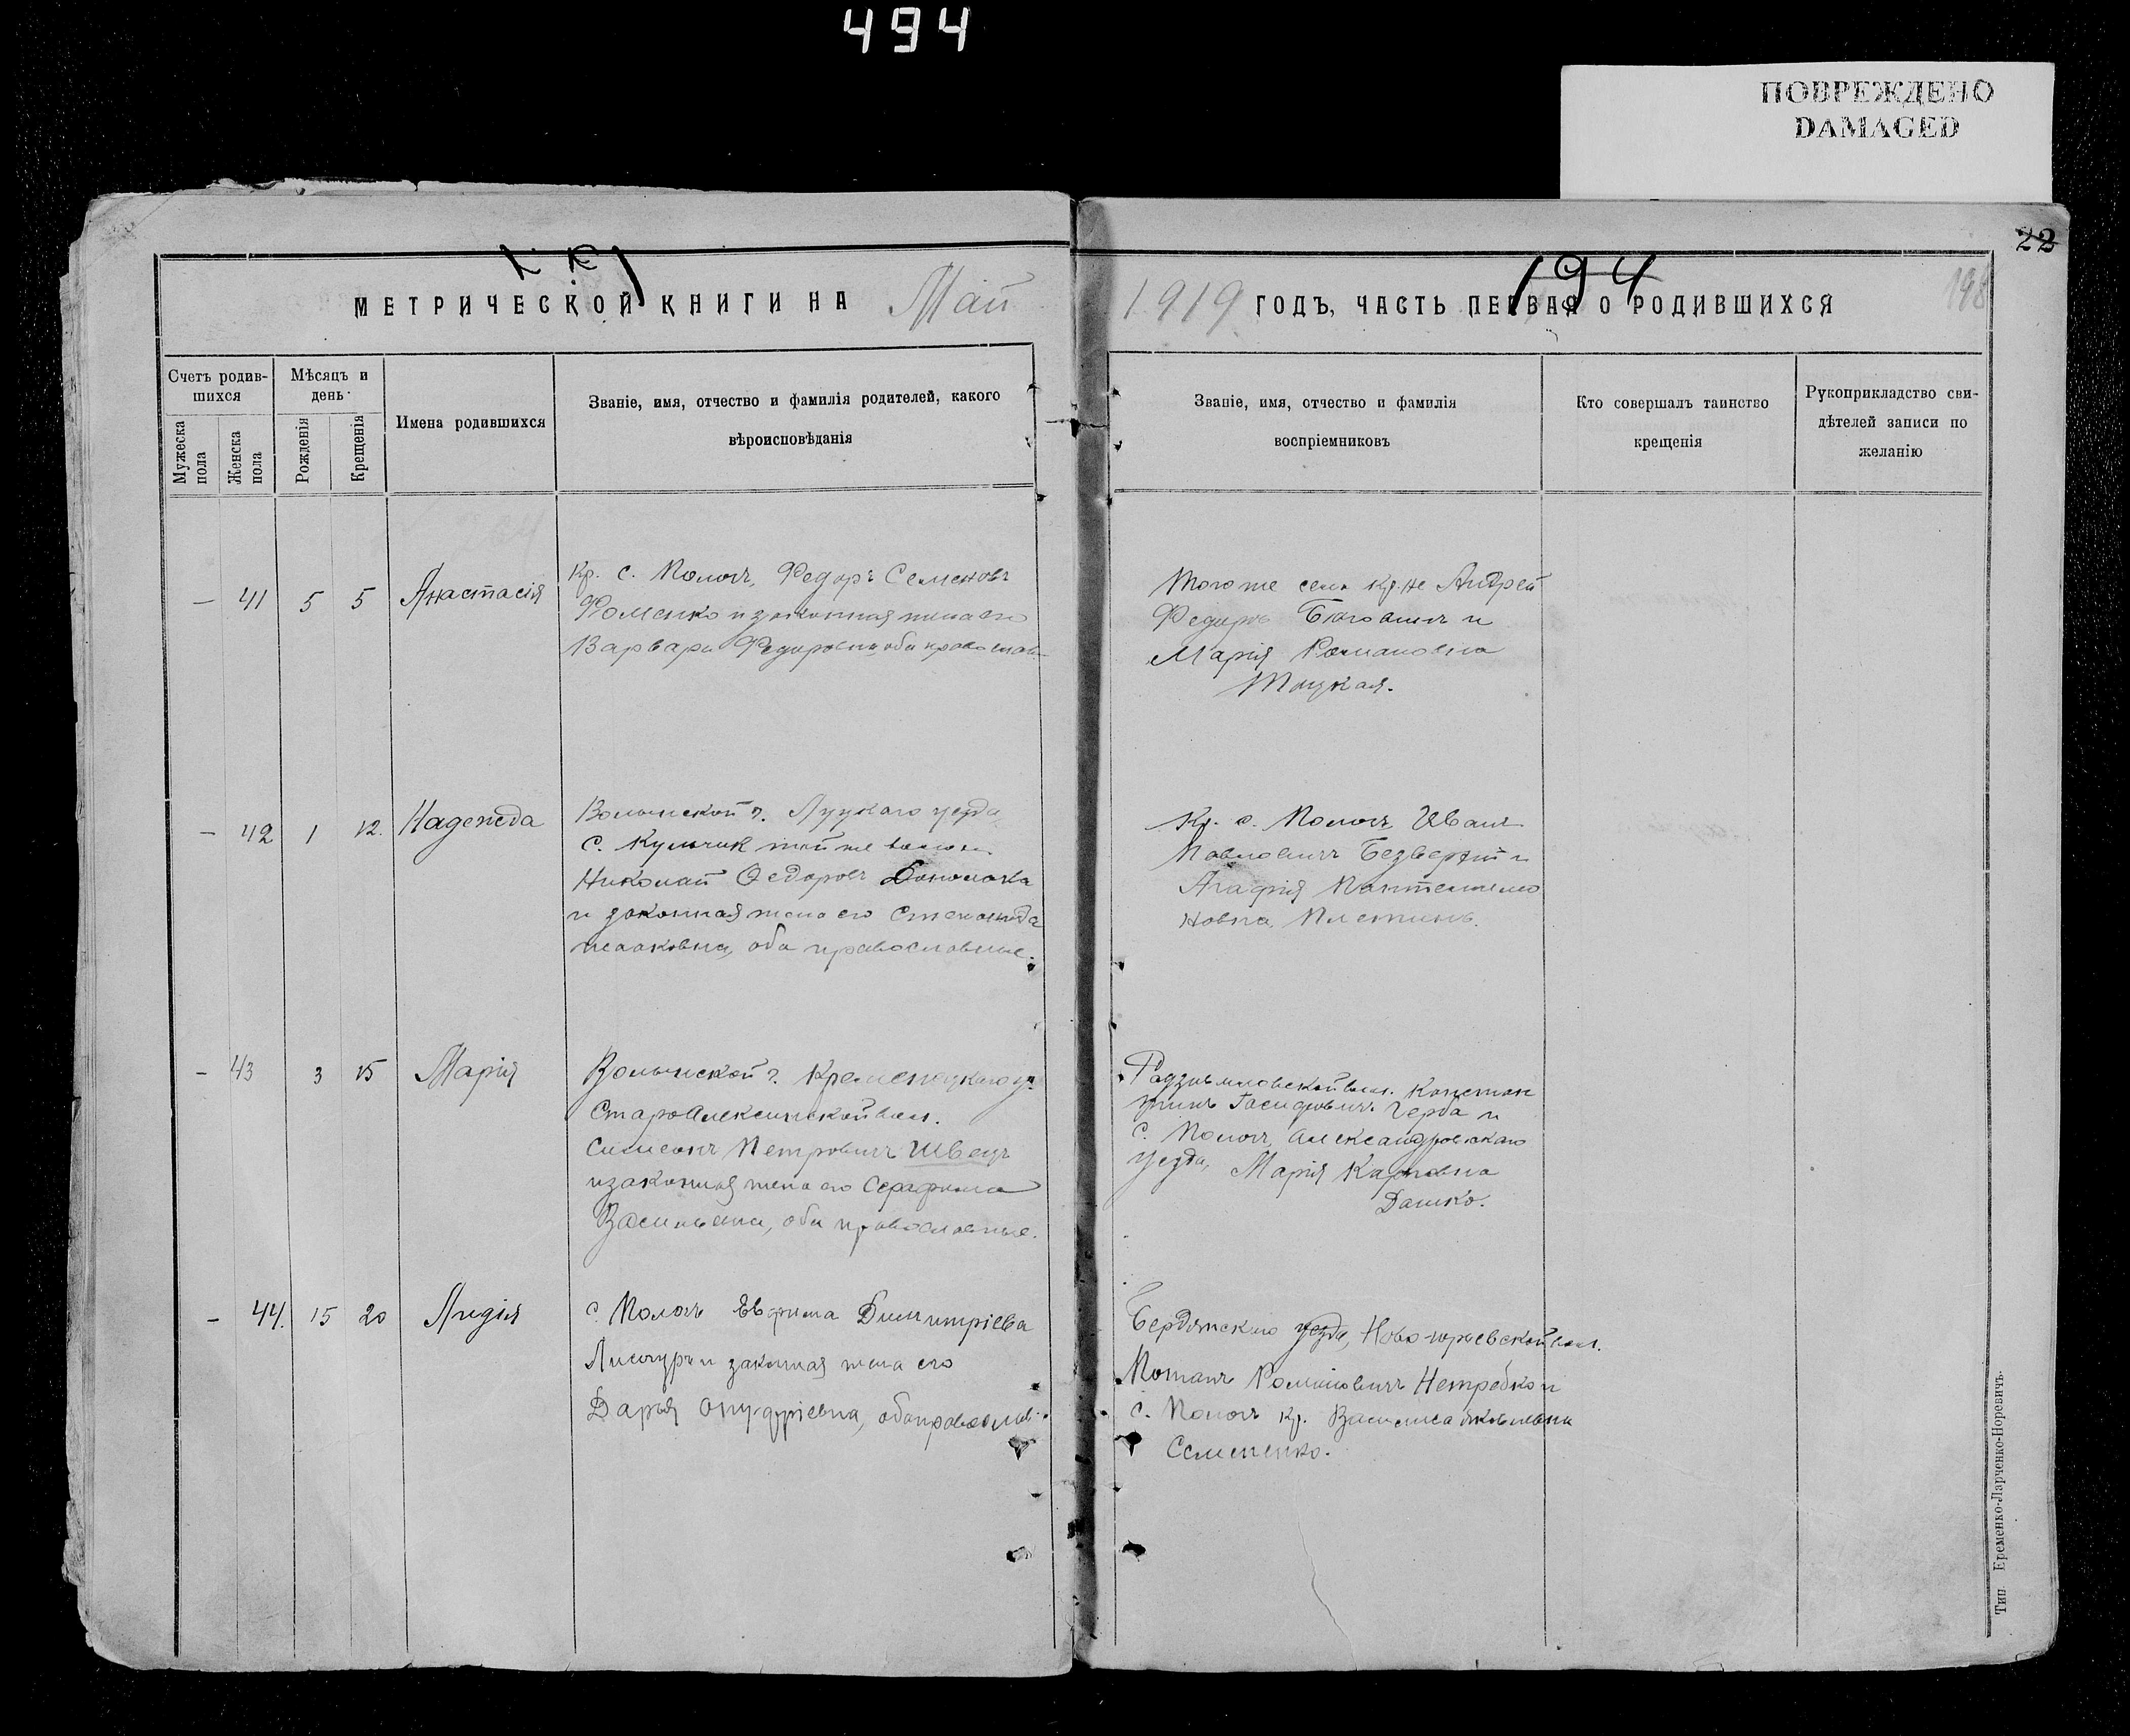 494
ПОВРЕЖДЕНО
DAMAGED
22
МЕТРИЧЕСКОЙ КНИГИ НА Май
1919 ГОДЪ, ЧАСТЬ ПЕРВАЯ О РОДИВШИХСЯ
194
198
Счетъ родив-
шихся
Мужеска
пола
Женска
пола
Мѣсяцъ и
день
Рожденія
Крещенія
Имена родившихся
Званіе, имя, отчество и фамилія родителей, какого
вѣроисповѣданія
Званіе, имя, отчество и фамилія
воспріемниковъ
Кто совершалъ таинство
крещенія
Рукоприкладство сви-
дѣтелей записи по
желанію
— 41 5 5 Анастасія
Кр. с. Пологъ, Федоръ Семеновъ
Фоменко и законная жена его
Варвара Федоровна, оба православ
Того же села кр-не Андрей
Федоровъ и
Марія Романовна
Тоцкая.
— 42 1 12. Надежда
Волынской г. Луцкаго уезда
с. Кульчик той же волости
Николай Ѳедоровъ
и законная жена его Степанида
Исааковна, оба православные.
Кр. с. Пологъ Иванъ
Павловичъ Безверхій и
Агафія Пантелеимо
новна
— 43 3 15 Марія
Волынской г. Кременецкаго уе.
Староалексинской вол.
Симеонъ Петровичъ Швецъ
и законная жена его Серафима
Васильевна, оба православные.
Радзивиловской вол. Констан
тинъ Герба и
с. Пологъ, Александровскаго
уезда, Марія Карповна
Дашко.
— 44. 15 20 Лидія
с. Пологъ Евфима Димитріева
и законная жена его
Дарья Онуфріевна, оба православ.
Бердянскаго уезда, Ново-юрьевской вол.
Потапъ Романовичъ Нетребко и
с. Пологъ кр. Василиса Яковлевна
Семененко.
Тип Еременко-Ларченко-Норевичъ.